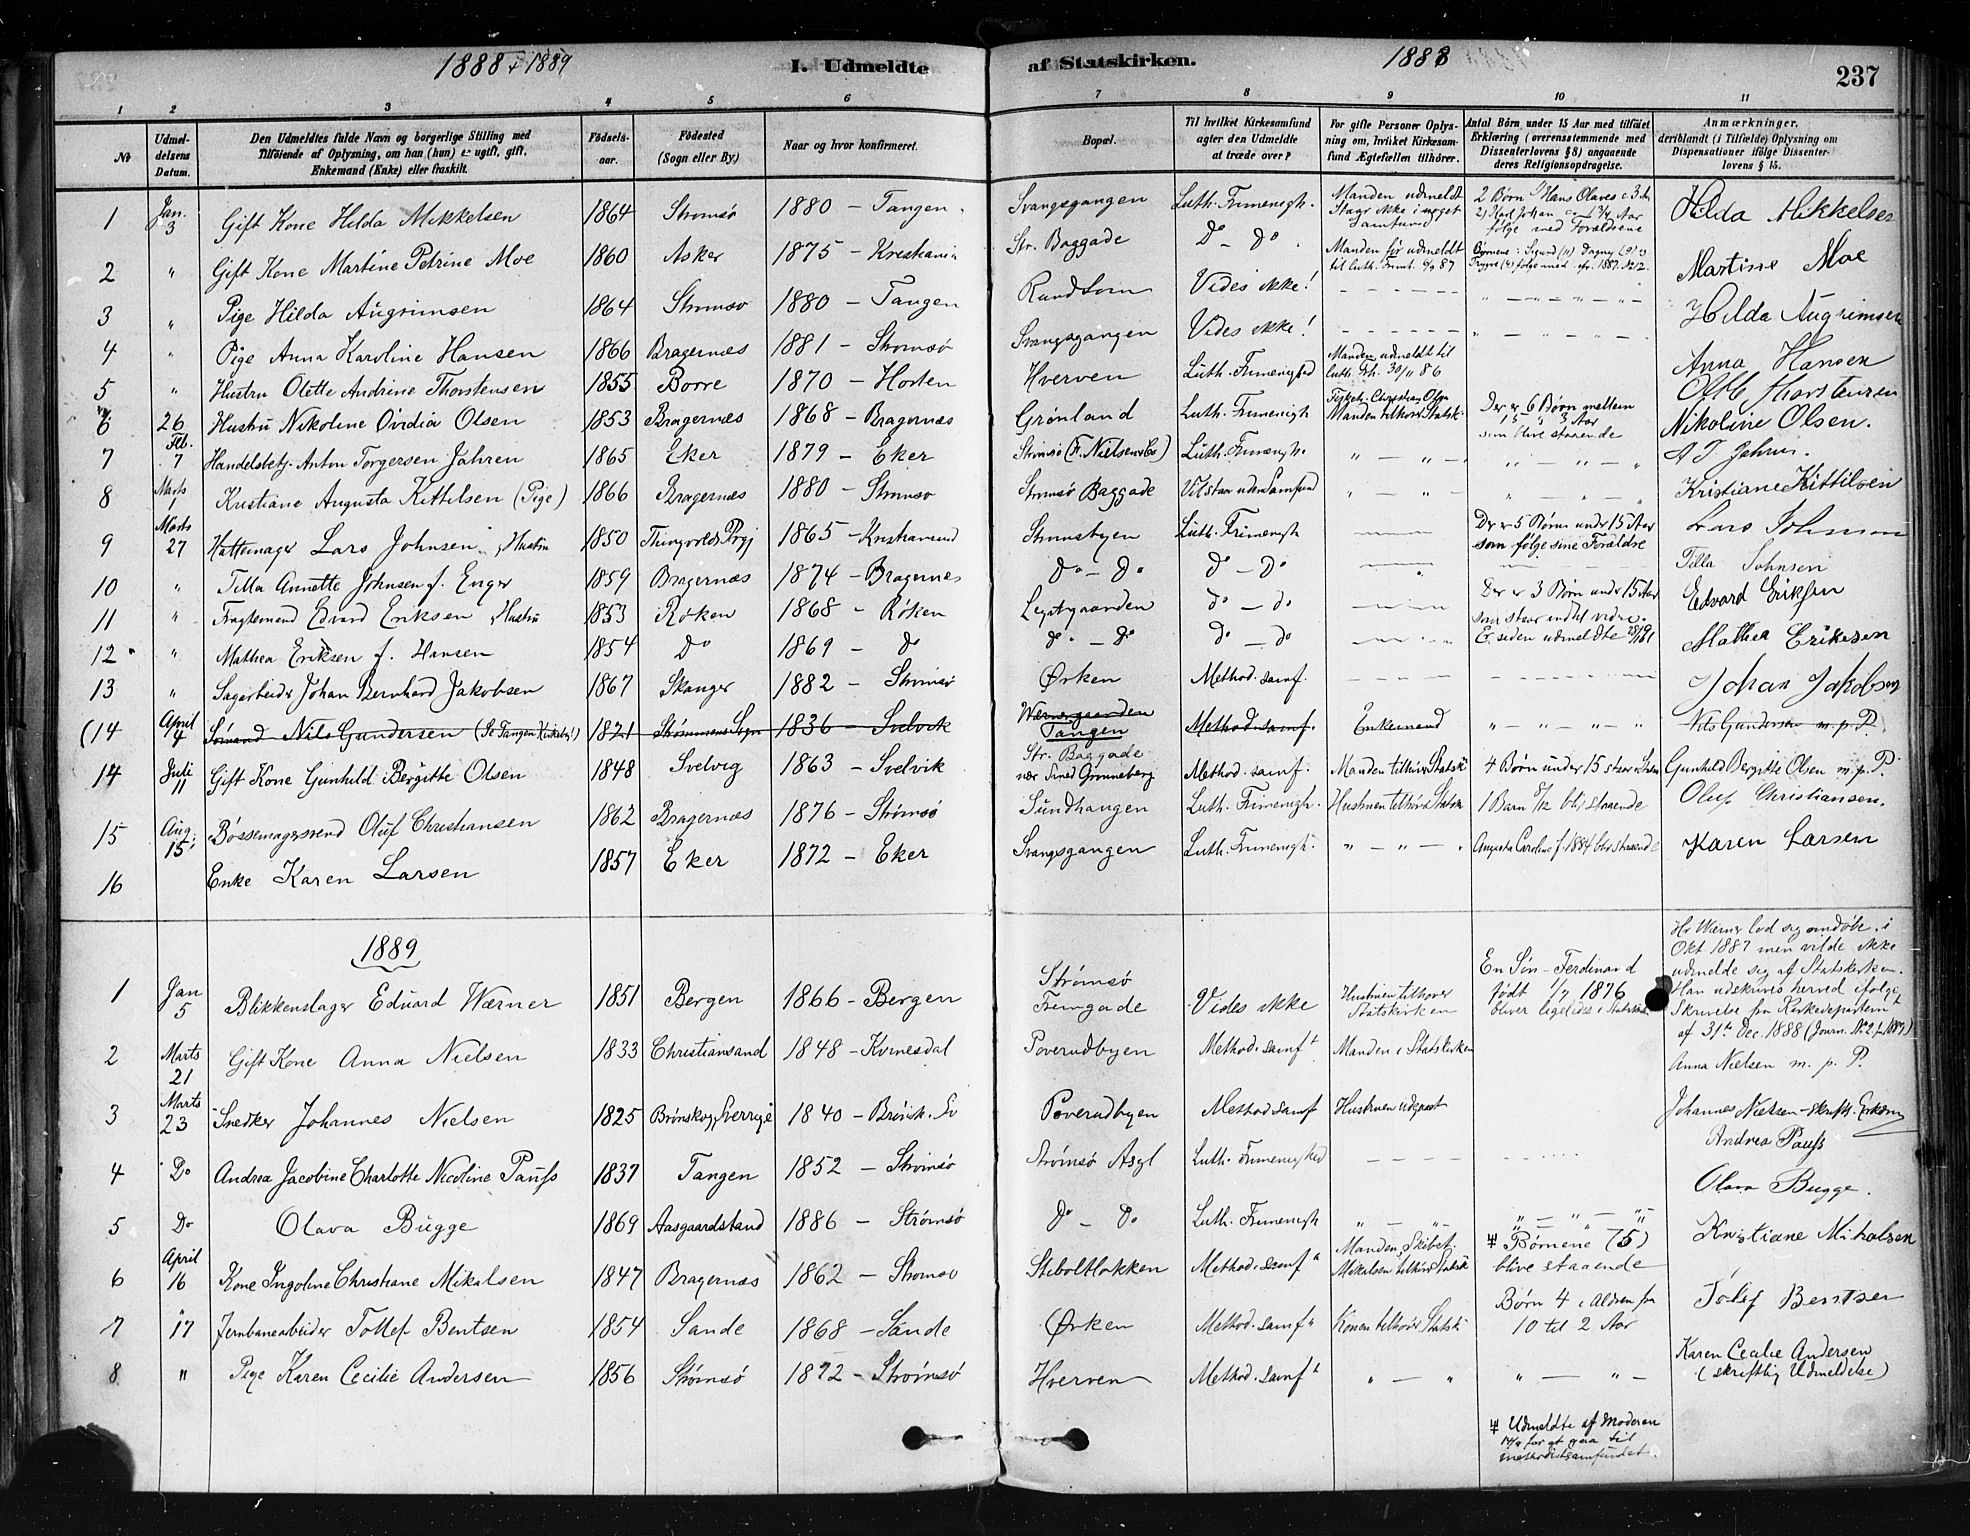 1888 + 1889
I. Udmeldte af Statskirken.
1888
237
1 2 3 4 5 6 7 8 9 10 11
No
Udmeldelsens Datum.
Den Udmeldtes fulde Navn og borgerlige Stilling med Tilføiende af Oplysning, om han (hun) er ugift, gift, Enkemand (Enke) eller fraskilt.
Fødselsaar.
Fødested (Sogn eller By).
Naar og hvor konfirmeret.
Bopæl.
Til hvilket Kirkesamfund agter den Udmeldte at træde over?
For gifte Personer Oplysning om, hvilket Kirkesamfund Ægtefællen tilhører.
Antal Børn under 15 Aar med tilføiet Erklæring (overensstemmende med Dissenterlovens § 8) angaaende deres Religionsopdragelse.
Anmærkninger, deriblandt (i Tilfælde) Oplysning om Dispensationer ifølge Dissenterlovens § 15.
1 Jan. 3 Gift Kone Hilda Mikkelsen 1864 Strømsø 1880 – Tangen Svangsgangen Luth. Frimenigh. Manden udmeldt Staar ikke i noget Samfund 2 Børn 1) Hans Olaves c. 3 Aar 2) Karl Johan 1 3/4 Aar følge med Forældrene Hilda Mikkelsen
2 " Gift Kone Martine Petrine Moe 1860 Asker 1875 – Kristiania Str. Baggade Do – Do Manden før udmeldt til luth. Frimh. 87 Børnene: Sigurd (11) Dagny (9) Trygve (4) følge med. 1887 No 12. Martine Moe
3 " Pige Hilda Augrimsen 1864 Strømsø 1880 – Tangen Rundtom Vides ikke! Hilda Augrimsen
4 " Pige Anna Karoline Hansen 1866 Bragernæs 1881 – Strømsø Svangsgangen Vides ikke! Anna Hansen
5 " Hustru Olette Andrine Thorstensen 1855 Borre 1870 – Horten Hverven Luth. Frimenighed Manden udmeldt til luth. Frh. 30/11 86 Thorstensen
6 26 Hustru Nikoline Ovidia Olsen 1853 Bragernæs 1868 – Bragernæs Grønland Luth. Frimenigh Christian Olsen Manden tilhører Statsk. Der er 6 Børn mellem 13 3 Aar som blive staaende Nikoline Olsen.
7 Feb. 7 Handelsbetj. Anton Torgersen Jahren 1865 Eker 1879 – Eker Strømsø (F. Nielsen & Co) Luth. Frimenigh. " – " – " – " – " A T Jahren.
8 Marts 7 Kristiane Augusta Kittelsen (Pige) 1866 Bragernæs 1880 – Strømsø Strømsø Baggade Vil staa uden Samfund " – " " " – " Kristiane Kittilsen
9 Marts 27 Hattemager Lars Johnsen, Hustru 1850 Thingvolds Prgj 1865 – Kristiansund Strømsbyen Luth. Frimenigh Der er 5 Børn under 15 Aar som følge sine Forældre Lars Johnsen
10 " Tilla Annette Johnsen f. Enger 1859 Bragernæs 1874 – Bragernes Do – Do Do – Do Tilla Johnsen
11 " Fragtemand Edvard Eriksen Hustru 1853 Røken 1868 – Røken do – do Der er 3 Børn under 15 Aar som staar indtil videre. Edvard Eriksen
12 " Mathea Eriksen f. Hansen 1854 Do 1869 – Do Do – Do Do – do Er siden udmeldte Mathea Eriksen
13 " Sagarbeider Johan Bernhard Jakobsen 1867 Skanger 1882 – Strømsø Ørken Method. samf. Johan Jakobsen
(14 April 4 Sømand Nils Gundersen (Se Tangen Kirkebog!) 1821 Strømmens Sogn 1836 – Svelvik Wærnersgaarden Tangen Method. samf. Enkemand " – " – " – " – " Nils Gundersen m. p. P.
14 Juli 11 Gift Kone Gunhild Bergitte Olsen 1848 Svelvig 1863 – Svelvik Str. Baggade nær Smed Grønneberg Method. samf. Manden tilhører Statsk 4 Børn under 15 Gunhild Bergitte Olsen m. p. P.
15 Aug. 15. Bøssemagersvend Oluf Christiansen 1862 Bragernæs 1876 – Strømsø Sundhangen Luth. Frimenigh. Hustruen tilhører Statsk 1 Barn 8/12 bliv staaende Oluf Christiansen.
16 Enke Karen Larsen 1857 Eker 1872 – Eker Svangsgangen Luth. Frimenigh. " – " – " Augusta Caroline f. 1884 bliv staaende Karen Larsen
1889
1 Jan 5 Blikkenslager Eduard Wærner 1851 Bergen 1866 – Bergen Strømsø Fremgade Vides ikke Hustruen tilhører Statskirken En Søn – Ferdinand født 1/7 1876 bliver ligeledes i Statskirken Hr Wærner lod sig omdøbe i Okt 1887 men vilde ikke udmelde sig af Statskirken. Han udskrives herved ifølge Skrivelse fra Kirkedepartem af 31te Dec. 1888 (Journ. No 2 1889)
2 Marts 21 Gift Kone Anna Nielsen 1833 Christiansand 1848 – Kvinesdal Poverudbyen Method. samft Manden i Statskirken Anna Nielsen m. p. P.
3 Marts 23 Snedker Johannes Nielsen 1825 Brønskog, Sverrige 1840 – Brønsk. Sv Poverudbyen Method samf Hustruen udgaat Johannes Nielsen – skriftl. Erklæring
4 Do Andrea Jacobine Charlotte Nicoline Pauss 1837 Tangen 1852 – Strømsø Strømsø Asyl Luth. Frimenighed Andrea Pauss
5 Do Olava Bugge 1869 Aasgaardstrand 1886 – Strømsø Do – Do Luth. Frimenigh " – " – " " – " – " Olava Bugge.
6 April 16 Kone Ingoline Christiane Mikalsen 1847 Bragernæs 1862 – Strømsø Stiboltløkken Method. samf Manden, Skibst. Mikalsen tilhører Statsk # Børnene (5) blive staaende Kristiane Mikalsen
7 " 17 Jernbanearbeider Tollef Bentsen 1854 Sande 1868 – Sande Ørken Method. samf Konen tilhører Statsk Børn 4 i Alderen fra 10 til 2 Aar Tolef Bentsen
8 " Pige Karen Cecilie Andersen 1856 Strømsø 1872 – Strømsø Hverven Method. samft " – " " – " – Karen Cecilie Andersen (skriftlig Udmeldelse)
# Udmeldte af Moderen
for at gaa til
methodistsamfundet.